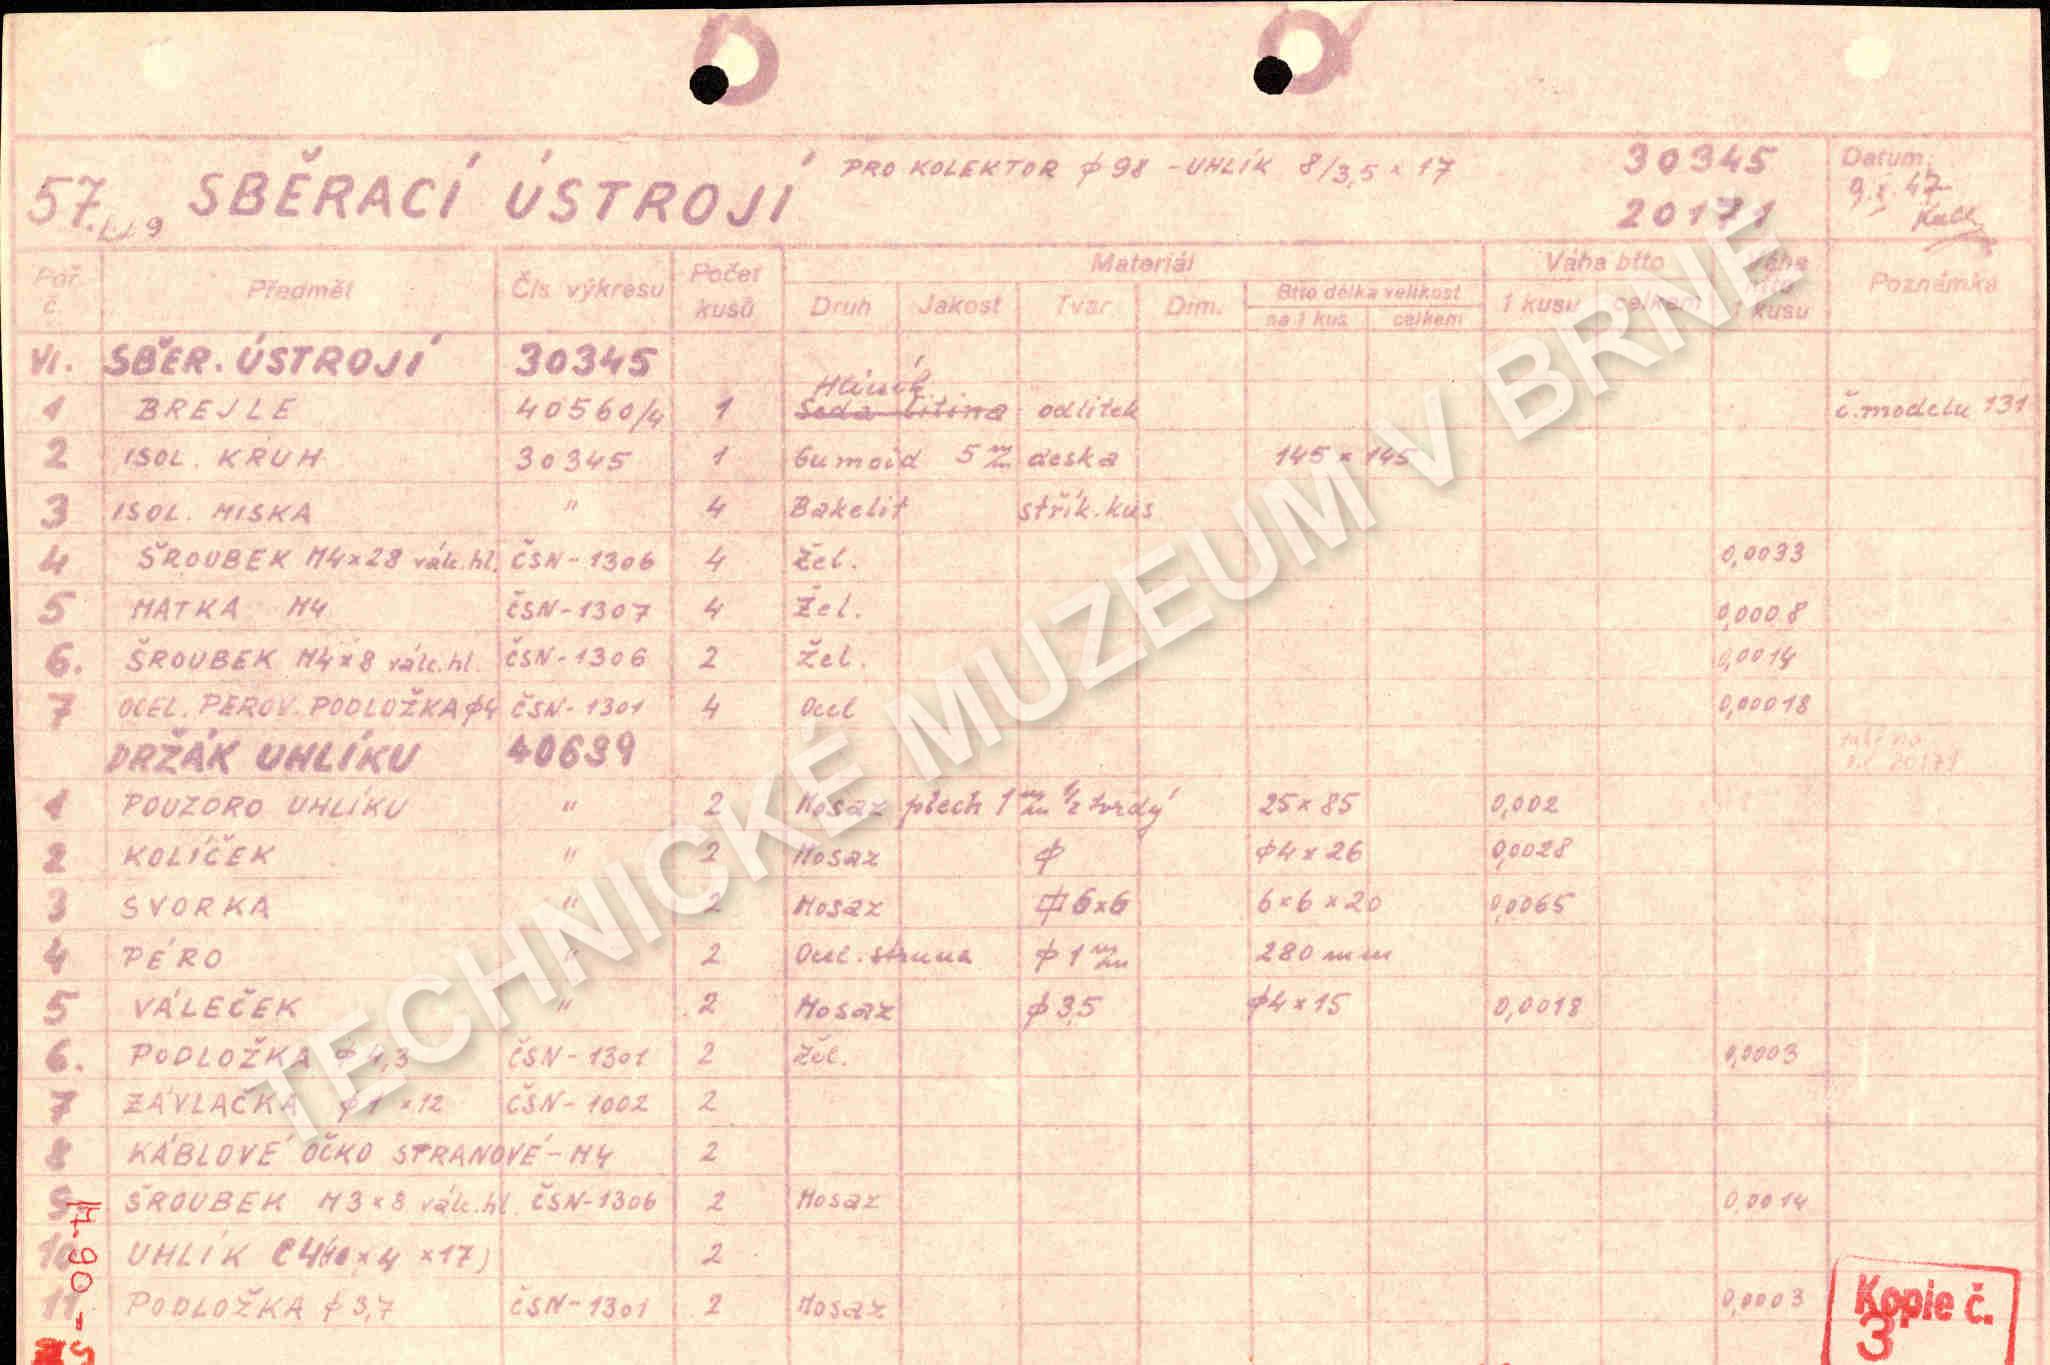 57. SBĚRACÍ ÚSTROJÍ PRO KOLEKTOR ϕ 98 - UHLÍK 8/3,5 × 17 30345 Datum:
20171 9.X.47
Poř. č. Předmět Čís. výkresu Počet kusů Materiál Váha btto Váha btto 1 kusu Poznámka
Druh Jakost Tvar Dim. Btto délka velikost 1 kusu celkem
na 1 kus celkem
VI. SBĚR. ÚSTROJÍ 30345
Hliník
1 BREJLE 40560/4 1 Šedá litina odlitek č. modelu 131
2 ISOL. KRUH 30345 1 Gumoid 5 m/m deska 145 × 145
3 ISOL. MISKA " 4 Bakelit střík. kus
4 ŠROUBEK M4×28 vál. hl. ČSN-1306 4 Žel. 0,0033
5 MATKA M4 ČSN-1307 4 Žel. 0,0008
6. ŠROUBEK M4×8 vál. hl. ČSN-1306 2 Žel. 0,0014
7 OCEL. PEROV. PODLOŽKA ϕ4 ČSN-1301 4 Ocel 0,00018
DRŽÁK UHLÍKU 40639
20171
1 POUZDRO UHLÍKU " 2 Mosaz plech 1 m/m 1/2 tvrdý 25 × 85 0,002
2 KOLÍČEK " 2 Mosaz ϕ ϕ4 × 26 0,0028
3 SVORKA " 2 Mosaz 6×6 6×6×20 0,0065
4 PÉRO " 2 Ocel. struna ϕ 1 m/m 280 mm
5 VÁLEČEK " 2 Mosaz ϕ 3,5 ϕ4 × 15 0,0018
6. PODLOŽKA ϕ 4,3 ČSN-1301 2 Žel. 0,0003
7 ZÁVLAČKA ϕ 1 × 12 ČSN-1002 2
8 KÁBLOVÉ OČKO STRANOVÉ - M4 2
9 ŠROUBEK M3×8 vál. hl. ČSN-1306 2 Mosaz 0,0014
10 UHLÍK × 4 × 17) 2
11 PODLOŽKA ϕ 3,7 ČSN-1301 2 Mosaz 0,0003
Kopie č.
3
TECHNICKÉ MUZEUM V BRNĚ